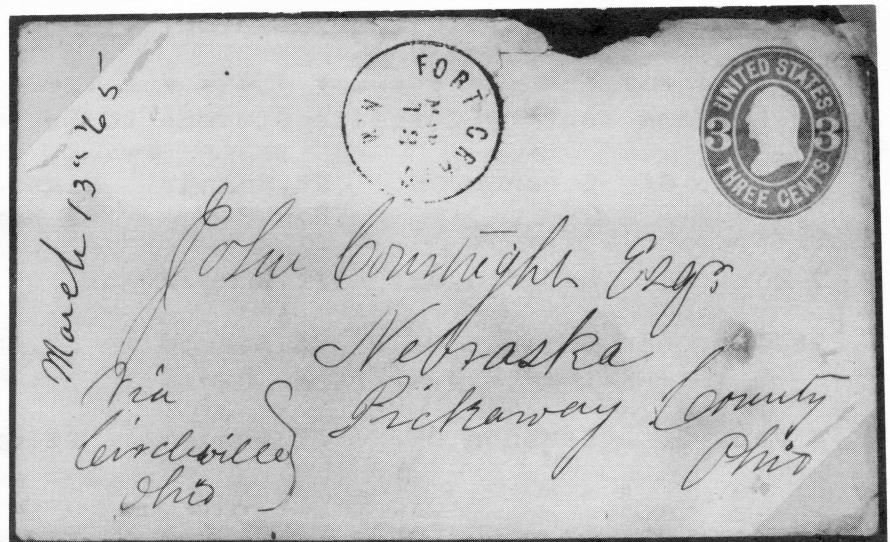 March 13" '65-
FORT CRAIG
MAR
13
N.M.
UNITED STATES
3 3
THREE CENTS
John Courtright Esqr.
Nebraska
Pickaway County
Ohio
Via
Circleville
Ohio